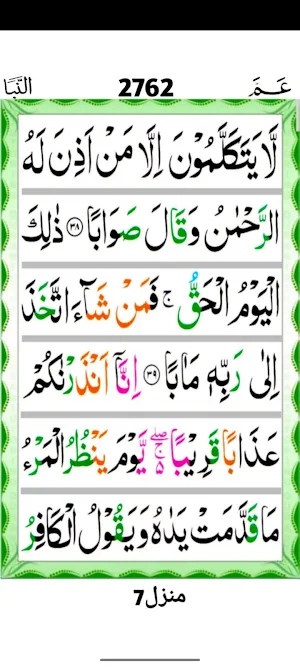 عَمَّ 2762 النَّبَا
لَّا يَتَكَلَّمُوْنَ اِلَّا مَنْ اَذِنَ لَهُ
الرَّحْمٰنُ وَقَالَ صَوَابًا ﴿۳۸﴾ ذٰلِكَ
الْيَوْمُ الْحَقُّ ۚ فَمَنْ شَآءَ اتَّخَذَ
اِلٰى رَبِّهٖ مَاٰبًا ﴿۳۹﴾ اِنَّاۤ اَنْذَرْنٰكُمْ
عَذَابًا قَرِيْبًا ۖۚ۬ يَّوْمَ يَنْظُرُ الْمَرْءُ
مَا قَدَّمَتْ يَدٰهُ وَيَقُوْلُ الْكَافِرُ
منزل7